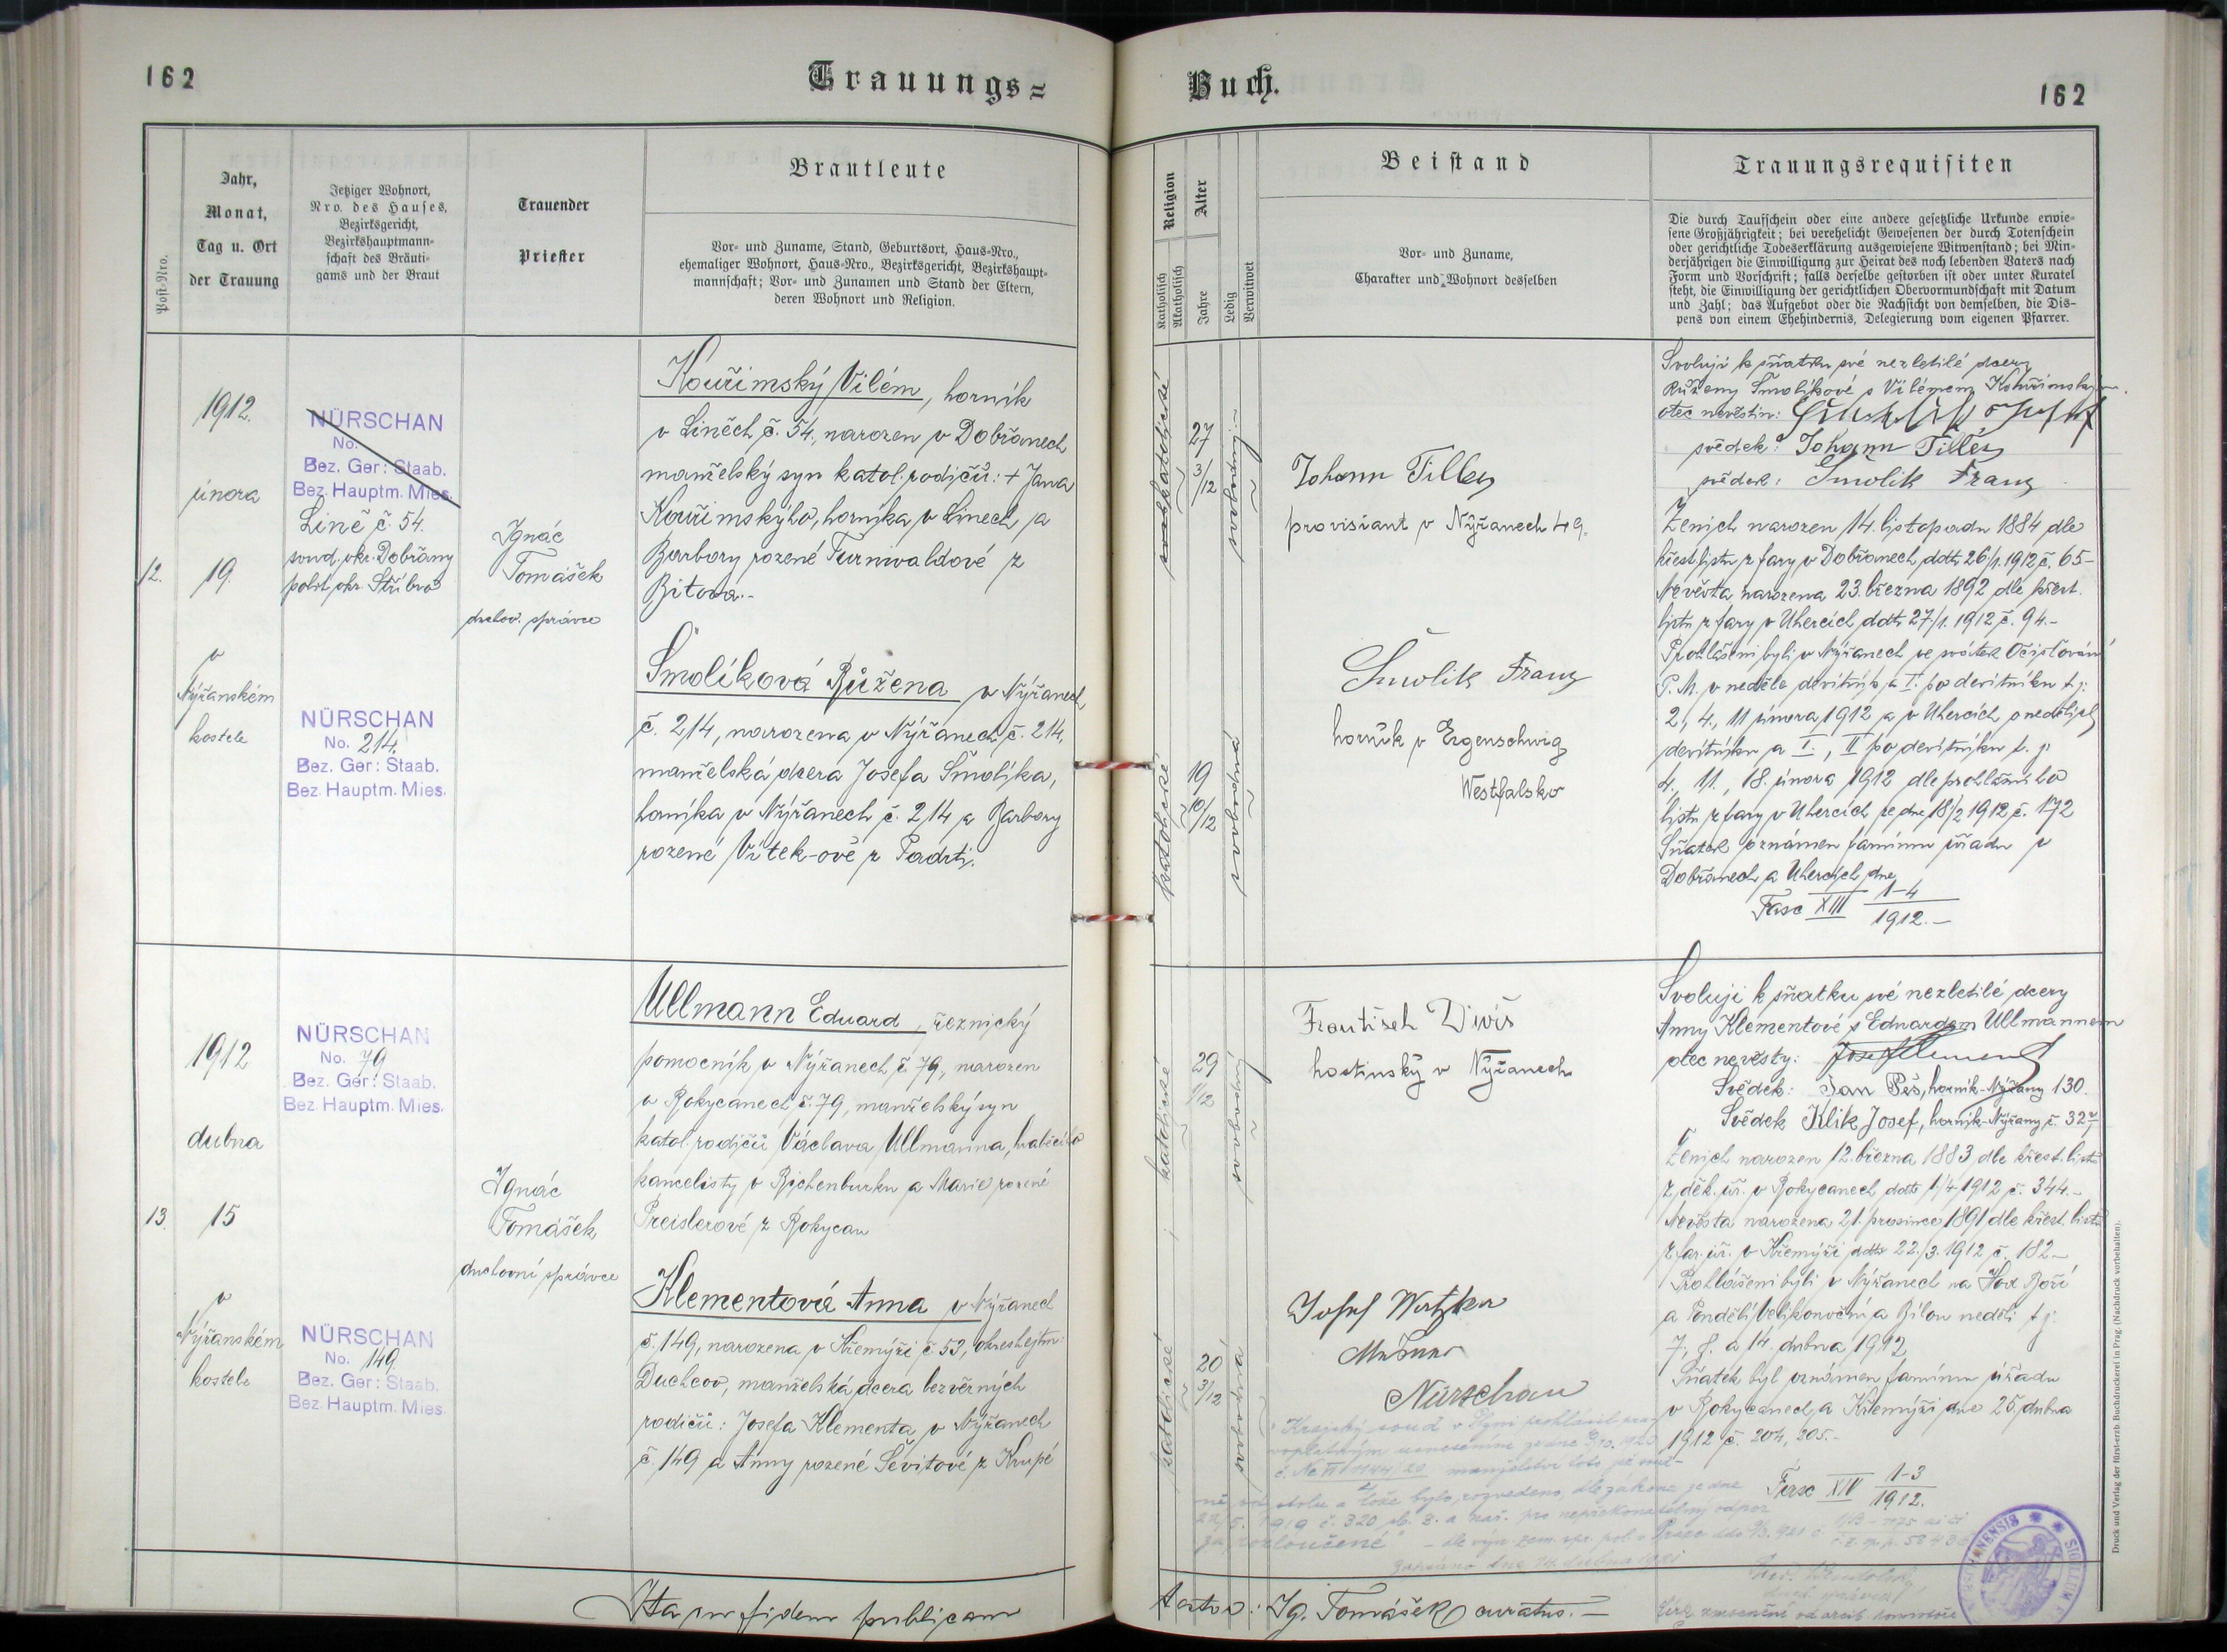 162
Trauungs=
Buch.
162
Post-Nro.
Jahr,
Monat,
Tag u. Ort
der Trauung
Jetziger Wohnort,
Nro. des Hauses,
Bezirksgericht,
Bezirkshauptmann-
schaft des Bräuti-
gams und der Braut
Trauender
Priester
Brautleute
Vor- und Zuname, Stand, Geburtsort, Haus-Nro.,
ehemaliger Wohnort, Haus-Nro., Bezirksgericht, Bezirkshaupt-
mannschaft; Vor- und Zunamen und Stand der Eltern,
deren Wohnort und Religion.
Religion
Katholisch
Akatholisch
Alter
Jahre
Ledig
Verwitwet
Beistand
Vor- und Zuname,
Charakter und Wohnort desselben
Trauungsrequisiten
Die durch Taufschein oder eine andere gesetzliche Urkunde erwie-
sene Großjährigkeit; bei verehelicht Gewesenen der durch Totenschein
oder gerichtliche Todeserklärung ausgewiesene Witwenstand; bei Min-
derjährigen die Einwilligung zur Heirat des noch lebenden Vaters nach
Form und Vorschrift; falls derselbe gestorben ist oder unter Kuratel
steht, die Einwilligung der gerichtlichen Obervormundschaft mit Datum
und Zahl; das Aufgebot oder die Nachsicht von demselben, die Dis-
pens von einem Ehehindernis, Delegierung vom eigenen Pfarrer.
12.
1912.
února
19.
v
Nýřanském
kostele
NÜRSCHAN
No.
Bez. Ger: Staab.
Bez. Hauptm. Mies.
Líně č. 54.
soud. okr. Dobřany
polit. okr. Stříbro
NÜRSCHAN
No. 214.
Bez. Ger: Staab.
Bez. Hauptm. Mies.
Ignác
Tomášek
duchov. správce
Kouřimský Vilém, horník
v Líněch č. 54, narozen v Dobřanech
manželský syn katol. rodičů: + Jana
Kouřimského, horníka v Línech a
Barbory rozené Turnwaldové z
Bitova.-
Smolíková Růžena v Nýřanech
č. 214, narozena v Nýřanech č. 214,
manželská dcera Josefa Smolíka,
horníka v Nýřanech č. 214 a Barbory
rozené Vítek-ové z Padrti.
27
3/12
katolické
19
10/12
svobodná
Johann Tilles
provisiant v Nýřanech 49.
Smolik Franz
horník v Ergenschwig
Westfalsko
Svoluji k sňatku své nezletilé dcery
Růženy Smolíkové s Vilémem Kouřimským.
otec nevěstin:
svědek: Johann Tilles
svědek: Smolik Franz
Ženich narozen 14. listopadu 1884 dle
křest. listu z fary v Dobřanech ddto 26/1. 1912 č. 65-
Nevěsta narozena 23. března 1892 dle křest.
listu z fary v Uhercích ddto 27/1. 1912 č. 94.-
Prohlášeni byli v Nýřanech ve svátek Očisťování
P. M. v neděle devítník a I. po devítníku t. j.
2., 4., 11 února 1912 a v Uhercích o nedělích
devítníku a I., II po devítníku t. j.
4., 11., 18. února 1912 dle prohlášního
listu z fary v Uhercích ze dne 18/2 1912 č. 172
Sňatek oznámen farnímu úřadu v
Dobřanech a Uhercích dne
Fasc XIII 1-4
1912.-
13.
1912
dubna
15
v
Nýřanském
kostele
NÜRSCHAN
No. 79
Bez. Ger: Staab.
Bez. Hauptm. Mies.
NÜRSCHAN
No. 149.
Bez. Ger: Staab.
Bez. Hauptm. Mies.
Ignác
Tomášek
duchovní správce
Ullmann Eduard, řeznický
pomocník v Nýřanech č. 79, narozen
v Rokycanech č. 79, manželský syn
katol. rodičů Václava Ullmanna,
kancelisty v a Marie rozené
Preislerové z Rokycan
Klementová Anna v Nýřanech
č. 149, narozena v Křemýži č 53, okres hejtm.
Duchcov, manželská dcera bezvěrných
rodičů: Josefa Klementa v Nýřanech
č 149 a Anny rozené Ševítové z Krupé
katolické
29
1/12
svobodný
katolické
20
3/12
svobodná
František Diviš
hostinský v Nýřanech
Josef Watzka
Nürschan
Svoluji k sňatku své nezletilé dcery
Anny Klementové s Eduardem Ullmannem
otec nevěsty: Josef Klement
Svědek: Jan Peš, horník-Nýřany 130.
Svědek Klik Josef, horník-Nýřany č. 327
Ženich narozen 12. března 1883 dle křest. listu
z děk. úř. v Rokycanech ddto 1/4 1912 č. 344.-
Nevěsta narozena 21. prosince 1891 dle křest. listu
z far. úř. v Křemýži ddto 22./3. 1912 č. 182-
Prohlášeni byli v Nýřanech na Hod Boží
a Pondělí Velikonoční a Bílou neděli t. j.
7., 8. a 14. dubna 1912
Sňatek byl oznámen farnímu úřadu
v Rokycanech a Křemýži dne 25. dubna
1912 č. 204, 205.-
Fasc XIV 1-3
1912.
Krajský soud v Plzni prohlásil
manželství toto
stolu a lože bylo rozvedeno, dle zákona ze dne
22/5. 1919 č. 320 sb. z. a nař. pro nepřekonatelný odpor
za rozloučené"
dne 14. dubna 1921
Ita in fidem publicam
Ig. Tomášek curatus.-
Druck und Verlag der fürst-erzb. Buchdruckerei in Prag. (Nachdruck vorbehalten).